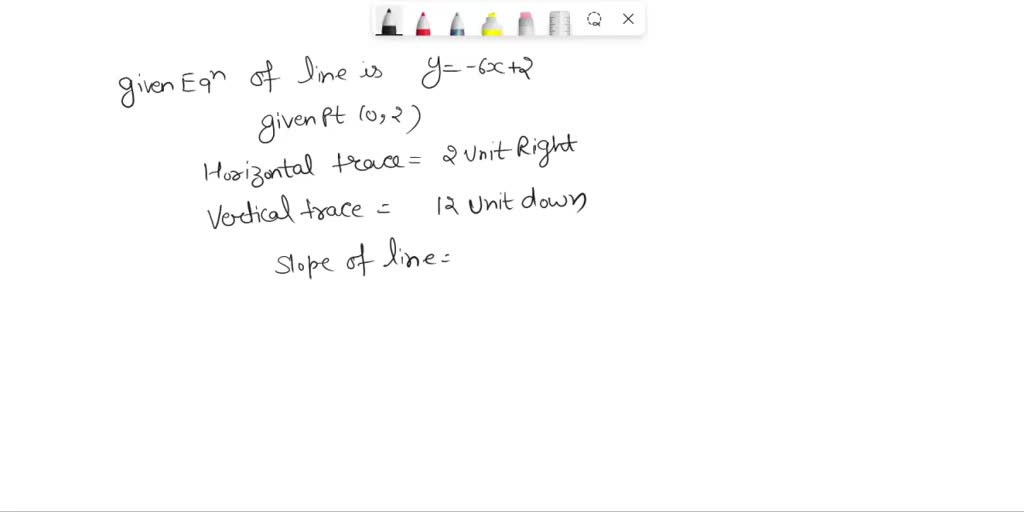 given Eqn of line is y=-6x+2
given Pt (0,2)
Horizontal trace = 2 Unit Right
Vertical trace = 12 Unit down
Slope of line =